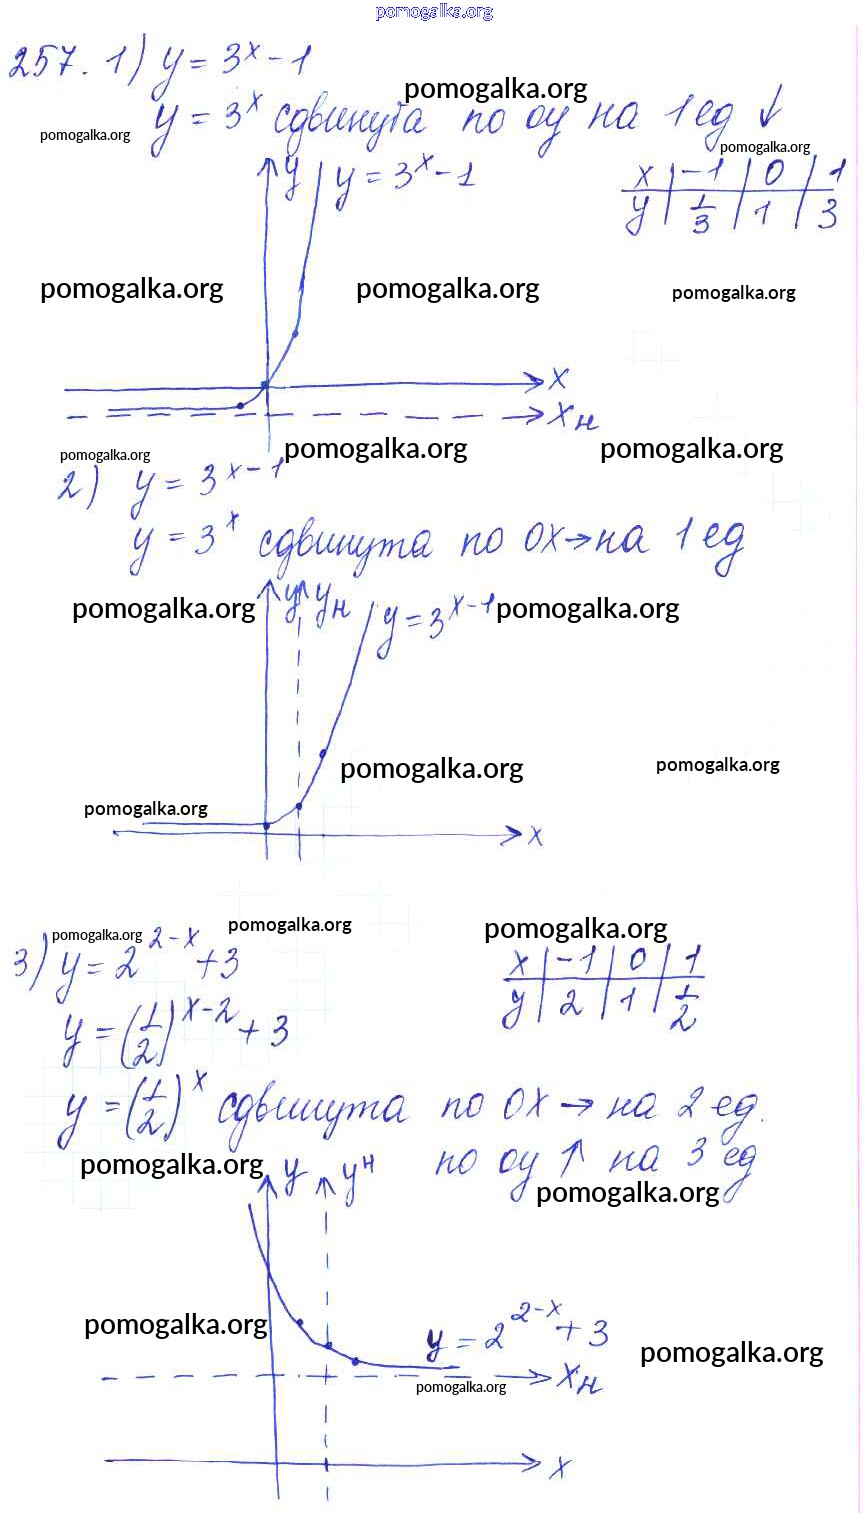 pomogalka.org
257. 1) y = 3^x - 1
pomogalka.org
y = 3^x сдвинута по oy на 1 ед ↓
pomogalka.org
pomogalka.org
y
y = 3^x - 1
x | -1 | 0 | 1
y | 1/3 | 1 | 3
pomogalka.org pomogalka.org pomogalka.org
x
xн
pomogalka.org pomogalka.org pomogalka.org
2) y = 3^(x-1)
y = 3^x сдвинута по OX → на 1 ед
y yн
pomogalka.org y = 3^(x-1) pomogalka.org
pomogalka.org pomogalka.org
pomogalka.org
x
pomogalka.org pomogalka.org pomogalka.org
3) y = 2^(2-x) + 3
x | -1 | 0 | 1
y | 2 | 1 | 1/2
y = (1/2)^(x-2) + 3
y = (1/2)^x сдвинута по OX → на 2 ед.
по oy ↑ на 3 ед
pomogalka.org pomogalka.org
y yн
pomogalka.org y = 2^(2-x) + 3 pomogalka.org
xн
pomogalka.org
x